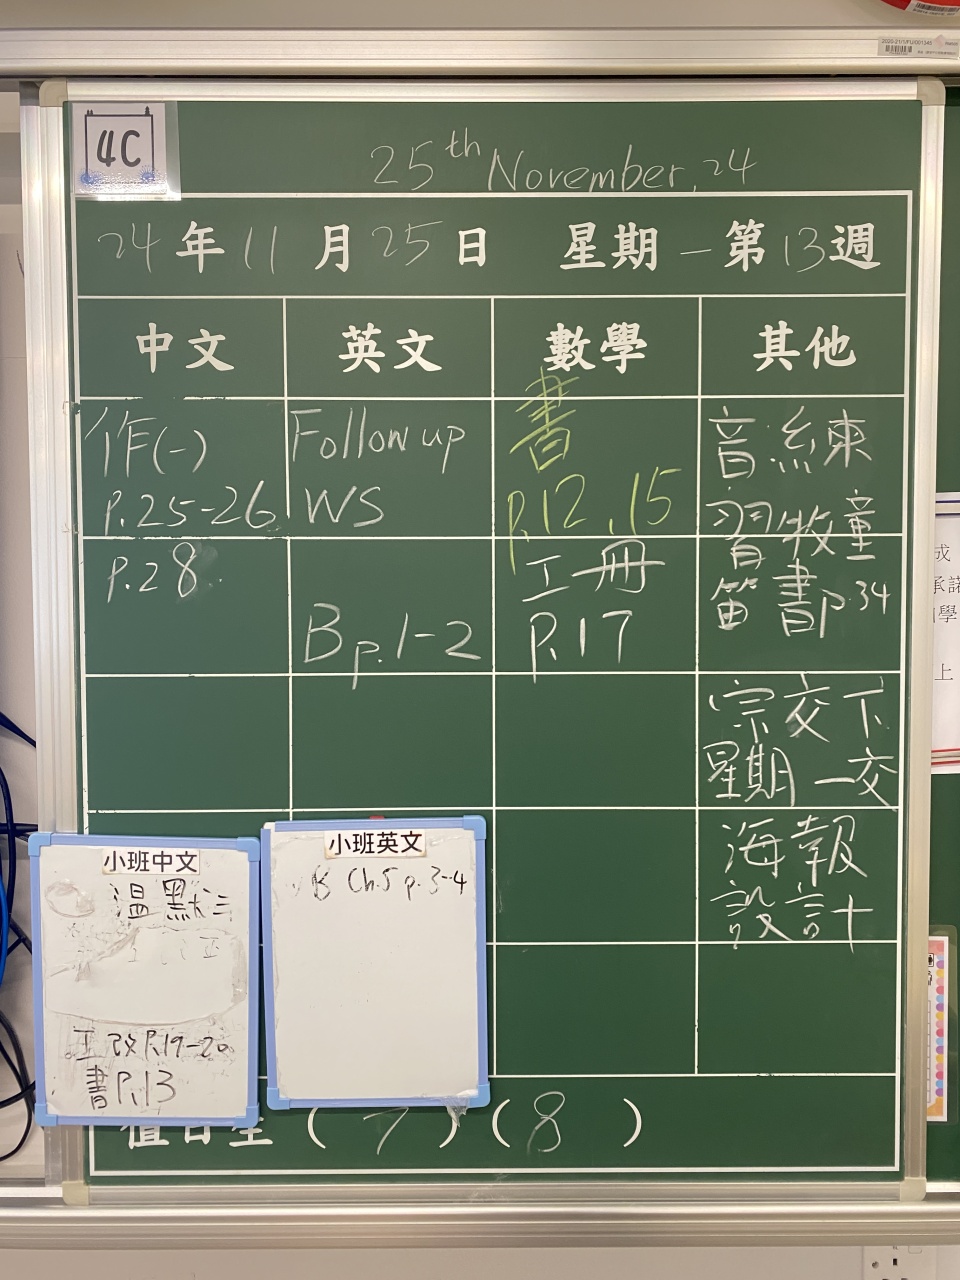 4C
25th November, 24
24年11月25日 星期一第13週
中文 英文 數學 其他
作(一)
P.25-26
P.28
Follow up
WS
B p.1-2
書
P.12, 15
工冊
P.17
音:練
習牧童
笛 書p.34
宗交下
星期一交
海報
設計
小班中文
溫默三
工改P.19-20
書P.13
小班英文
B Ch.5 p.3-4
值日生 ( 7 ) ( 8 )
成
承諾
學
上